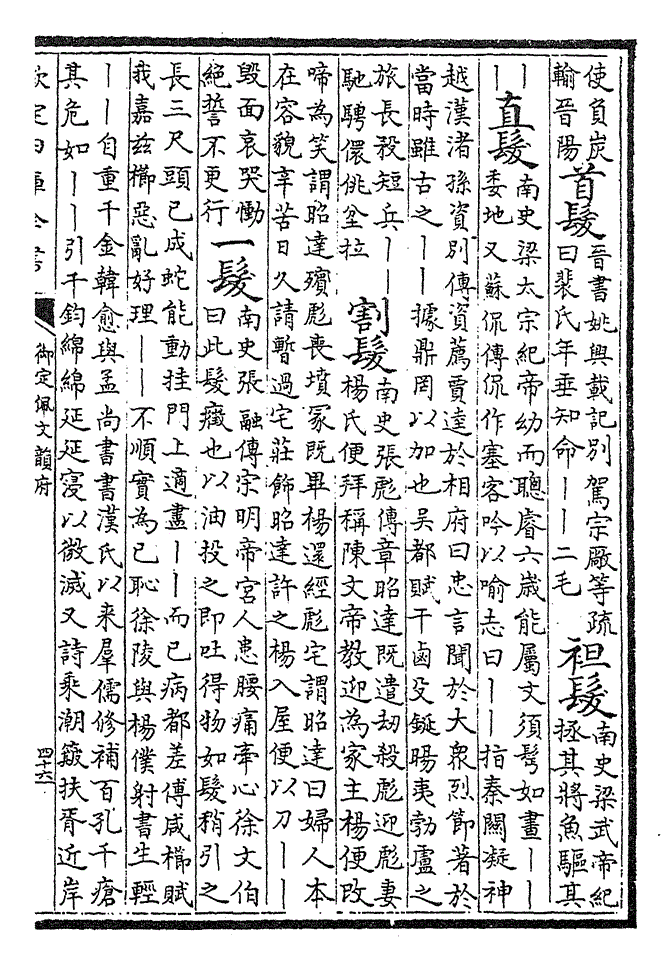 使負炭
輸晉陽
首髮
晉書姚興載記別駕宗厰等疏
曰裴氏年垂知命丨丨二毛
袒髮
南史梁武帝紀
拯其將魚驅其
丨丨
直髮
南史梁太宗紀帝幼而聰睿六歳能屬文須髩如畫丨丨
委地又蘇侃傳侃作塞客吟以喻志曰丨丨指秦闗凝神
越漢渚孫資别傳資薦賈逵於相府曰忠言聞於大衆烈節著於
當時雖古之丨丨據鼎罔以加也吳都賦干鹵殳鋋暘夷勃盧之
旅長殺短兵丨丨
馳騁儇佻坌拉
割髮
南史張彪傳章昭達既遣劫殺彪迎彪妻
楊氏便拜稱陳文帝教迎為家主楊便改
啼為笑謂昭達殯彪喪墳冢既畢楊還經彪宅謂昭達曰婦人本
在容貌辛苦日久請暫過宅莊飾昭達許之楊入屋便以刀丨丨
毁面哀哭慟
絶誓不更行
一髮
南史張融傳宗明帝宮人患腰痛牽心徐文伯
曰此髮癥也以油投之即吐得物如髮稍引之
長三尺頭已成蛇能動挂門上適盡丨丨而已病都差傅咸櫛賦
我嘉兹櫛惡亂好理丨丨不順實為已恥徐陵與楊僕射書生輕
丨丨自重千金韓愈與孟尚書書漢氏以来羣儒修補百孔千瘡
其危如丨丨引千鈞綿綿延延寖以微滅又詩乘潮簸扶胥近岸
欽定四庫全書
御定佩文韻府
四十六